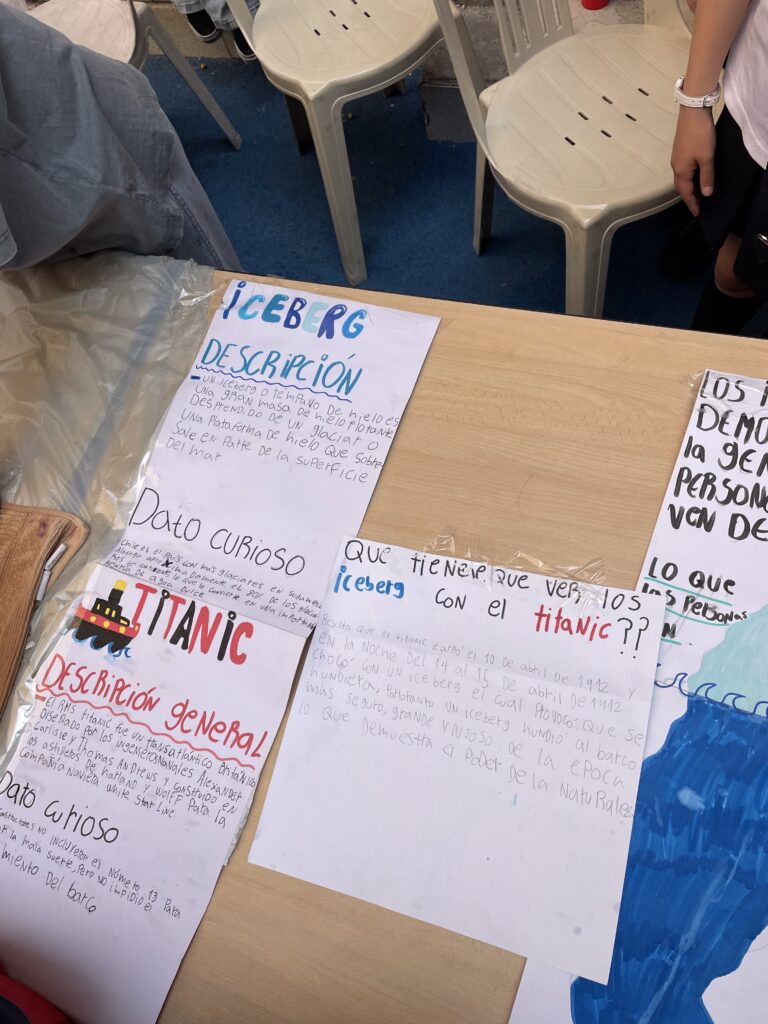 iCEBERG
DESCRIPCIÓN
- UN iceberg o tempano DE Hielo es
UNA gran masa de hielo flotante
DESPRENDIDO DE UN glaciar o
UNA Plataforma de hielo que sobre
sale en parte de la superficie
Del mar
Dato curioso
Chile es el País con mas glaciares en
Albergo DEL 80% DE los
DE agua Dulce
TITANIC
DESCRIPCIÓN general
El RMS titanic fue un transatlántico Británico
DISEÑADO POR los ingenieros navales Alexander
Carlisle y Thomas ANDREWS y construido en
los astilleros DE Harland y Wolff Para la
Compañía Naviera White Star Line.
Dato curioso
NO incluyeron el Número 13 Para
la mala suerte, Pero NO impidió el
miento Del barco
QUE tienen que ver los
iceberg con el titanic??
Resulta que el titanic zarpó el 10 de abril de 1912 y
EN la NOCHE DEL 14 al 15 DE abril DE 1912
chocó CON UN iceberg el cual Provocó que se
hundiera, Por lo tanto UN iceberg hundió al barco
más seguro, grande y lujoso DE la época
lo que Demuestra el Poder De la Naturalez
LOS i
DEMU
la GEN
PERSONA
VEN DE
LO QUE
las Personas